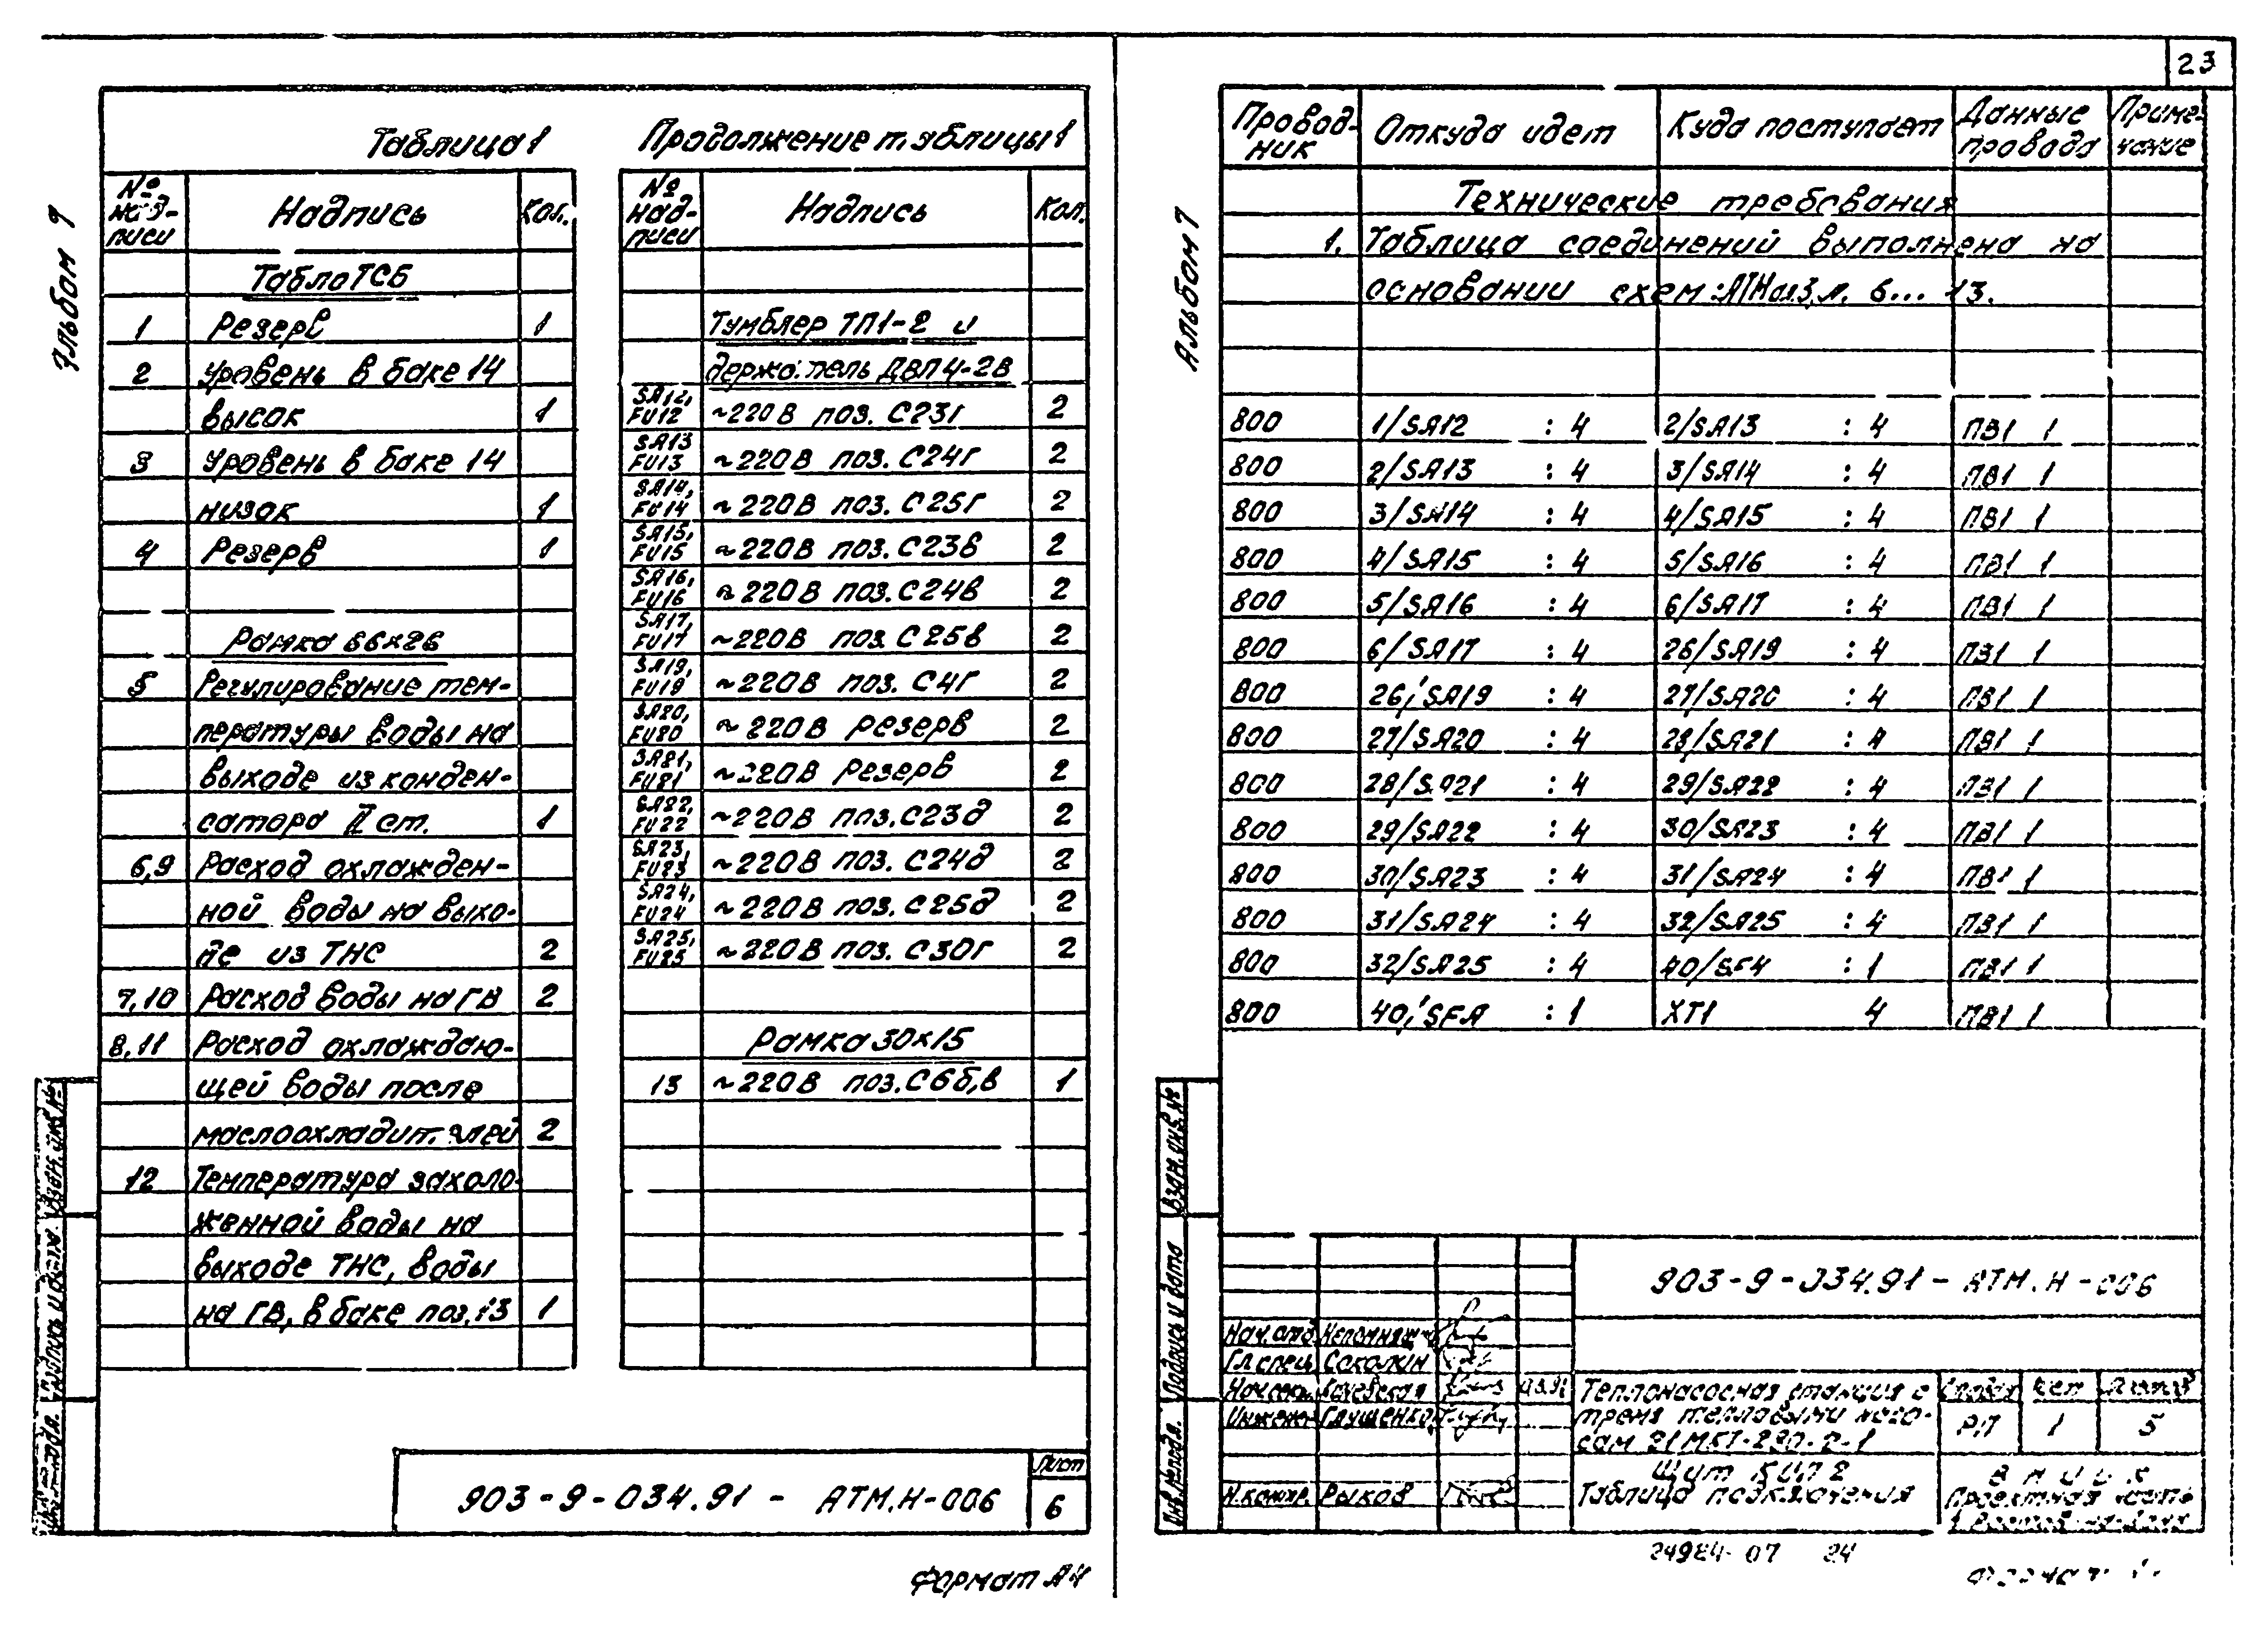 23
Альбом 7
Таблица 1
№ надписи Надпись Кол.
Табло ТСБ
1 Резерв 1
2 Уровень в баке 14
высок 1
3 Уровень в баке 14
низок 1
4 Резерв 1
Рамка 66×26
5 Регулирование тем-
пературы воды на
выходе из конден-
сатора II ст. 1
6,9 Расход охлажден-
ной воды на выхо-
де из ТНС 2
7,10 Расход воды на ГВ 2
8,11 Расход охлаждаю-
щей воды после
маслоохладителей 2
12 Температура захоло-
женной воды на
выходе ТНС, воды
на ГВ, в баке поз.13 1
Продолжение таблицы 1
№ надписи Надпись Кол.
Тумблер ТП1-2 и
держатель ДВП4-2В
SA12, FU12 ~220В поз. С23г 2
SA13 FU13 ~220В поз. С24г 2
SA14, FU14 ~220В поз. С25г 2
SA15, FU15 ~220В поз. С23в 2
SA16, FU16 ~220В поз. С24в 2
SA17, FU17 ~220В поз. С25в 2
SA19, FU19 ~220В поз. С4г 2
SA20, FU20 ~220В резерв 2
SA21, FU21 ~220В резерв 2
SA22, FU22 ~220В поз. С23д 2
SA23, FU23 ~220В поз. С24д 2
SA24, FU24 ~220В поз. С25д 2
SA25, FU25 ~220В поз. С30г 2
Рамка 30×15
13 ~220В поз. С6б,в 1
Взам. инв. №
Подпись и дата
903-9-034.91 - АТМ.Н-006
Лист
6
Формат А4
Альбом 7
Провод-
ник Откуда идет Куда поступает Данные
провода Приме-
чание
Технические требования
1. Таблица соединений выполнена на
основании схем: л. 6... 13.
800 1/SA12 :4 2/SA13 :4 ПВ1 1
800 2/SA13 :4 3/SA14 :4 ПВ1 1
800 3/SA14 :4 4/SA15 :4 ПВ1 1
800 4/SA15 :4 5/SA16 :4 ПВ1 1
800 5/SA16 :4 6/SA17 :4 ПВ1 1
800 6/SA17 :4 26/SA19 :4 ПВ1 1
800 26/SA19 :4 27/SA20 :4 ПВ1 1
800 27/SA20 :4 28/SA21 :4 ПВ1 1
800 28/SA21 :4 29/SA22 :4 ПВ1 1
800 29/SA22 :4 30/SA23 :4 ПВ1 1
800 30/SA23 :4 31/SA24 :4 ПВ1 1
800 31/SA24 :4 32/SA25 :4 ПВ1 1
800 32/SA25 :4 40/SF4 :1 ПВ1 1
800 40/SF4 :1 XT1 4 ПВ1 1
Взам. инв. №
Подпись и дата
Инв. № подл.
903-9-034.91 - АТМ.Н-006
Нач. отд.
Гл. спец. Соколин
Нач. сек.
Инженер Глущенко
Н. контр. Рыков
Теплонасосная станция с
тремя тепловыми насо-
сами
Стадия Лист Листов
РП 1 5
Щит КИП 2
Таблица подключения
24984-07 24